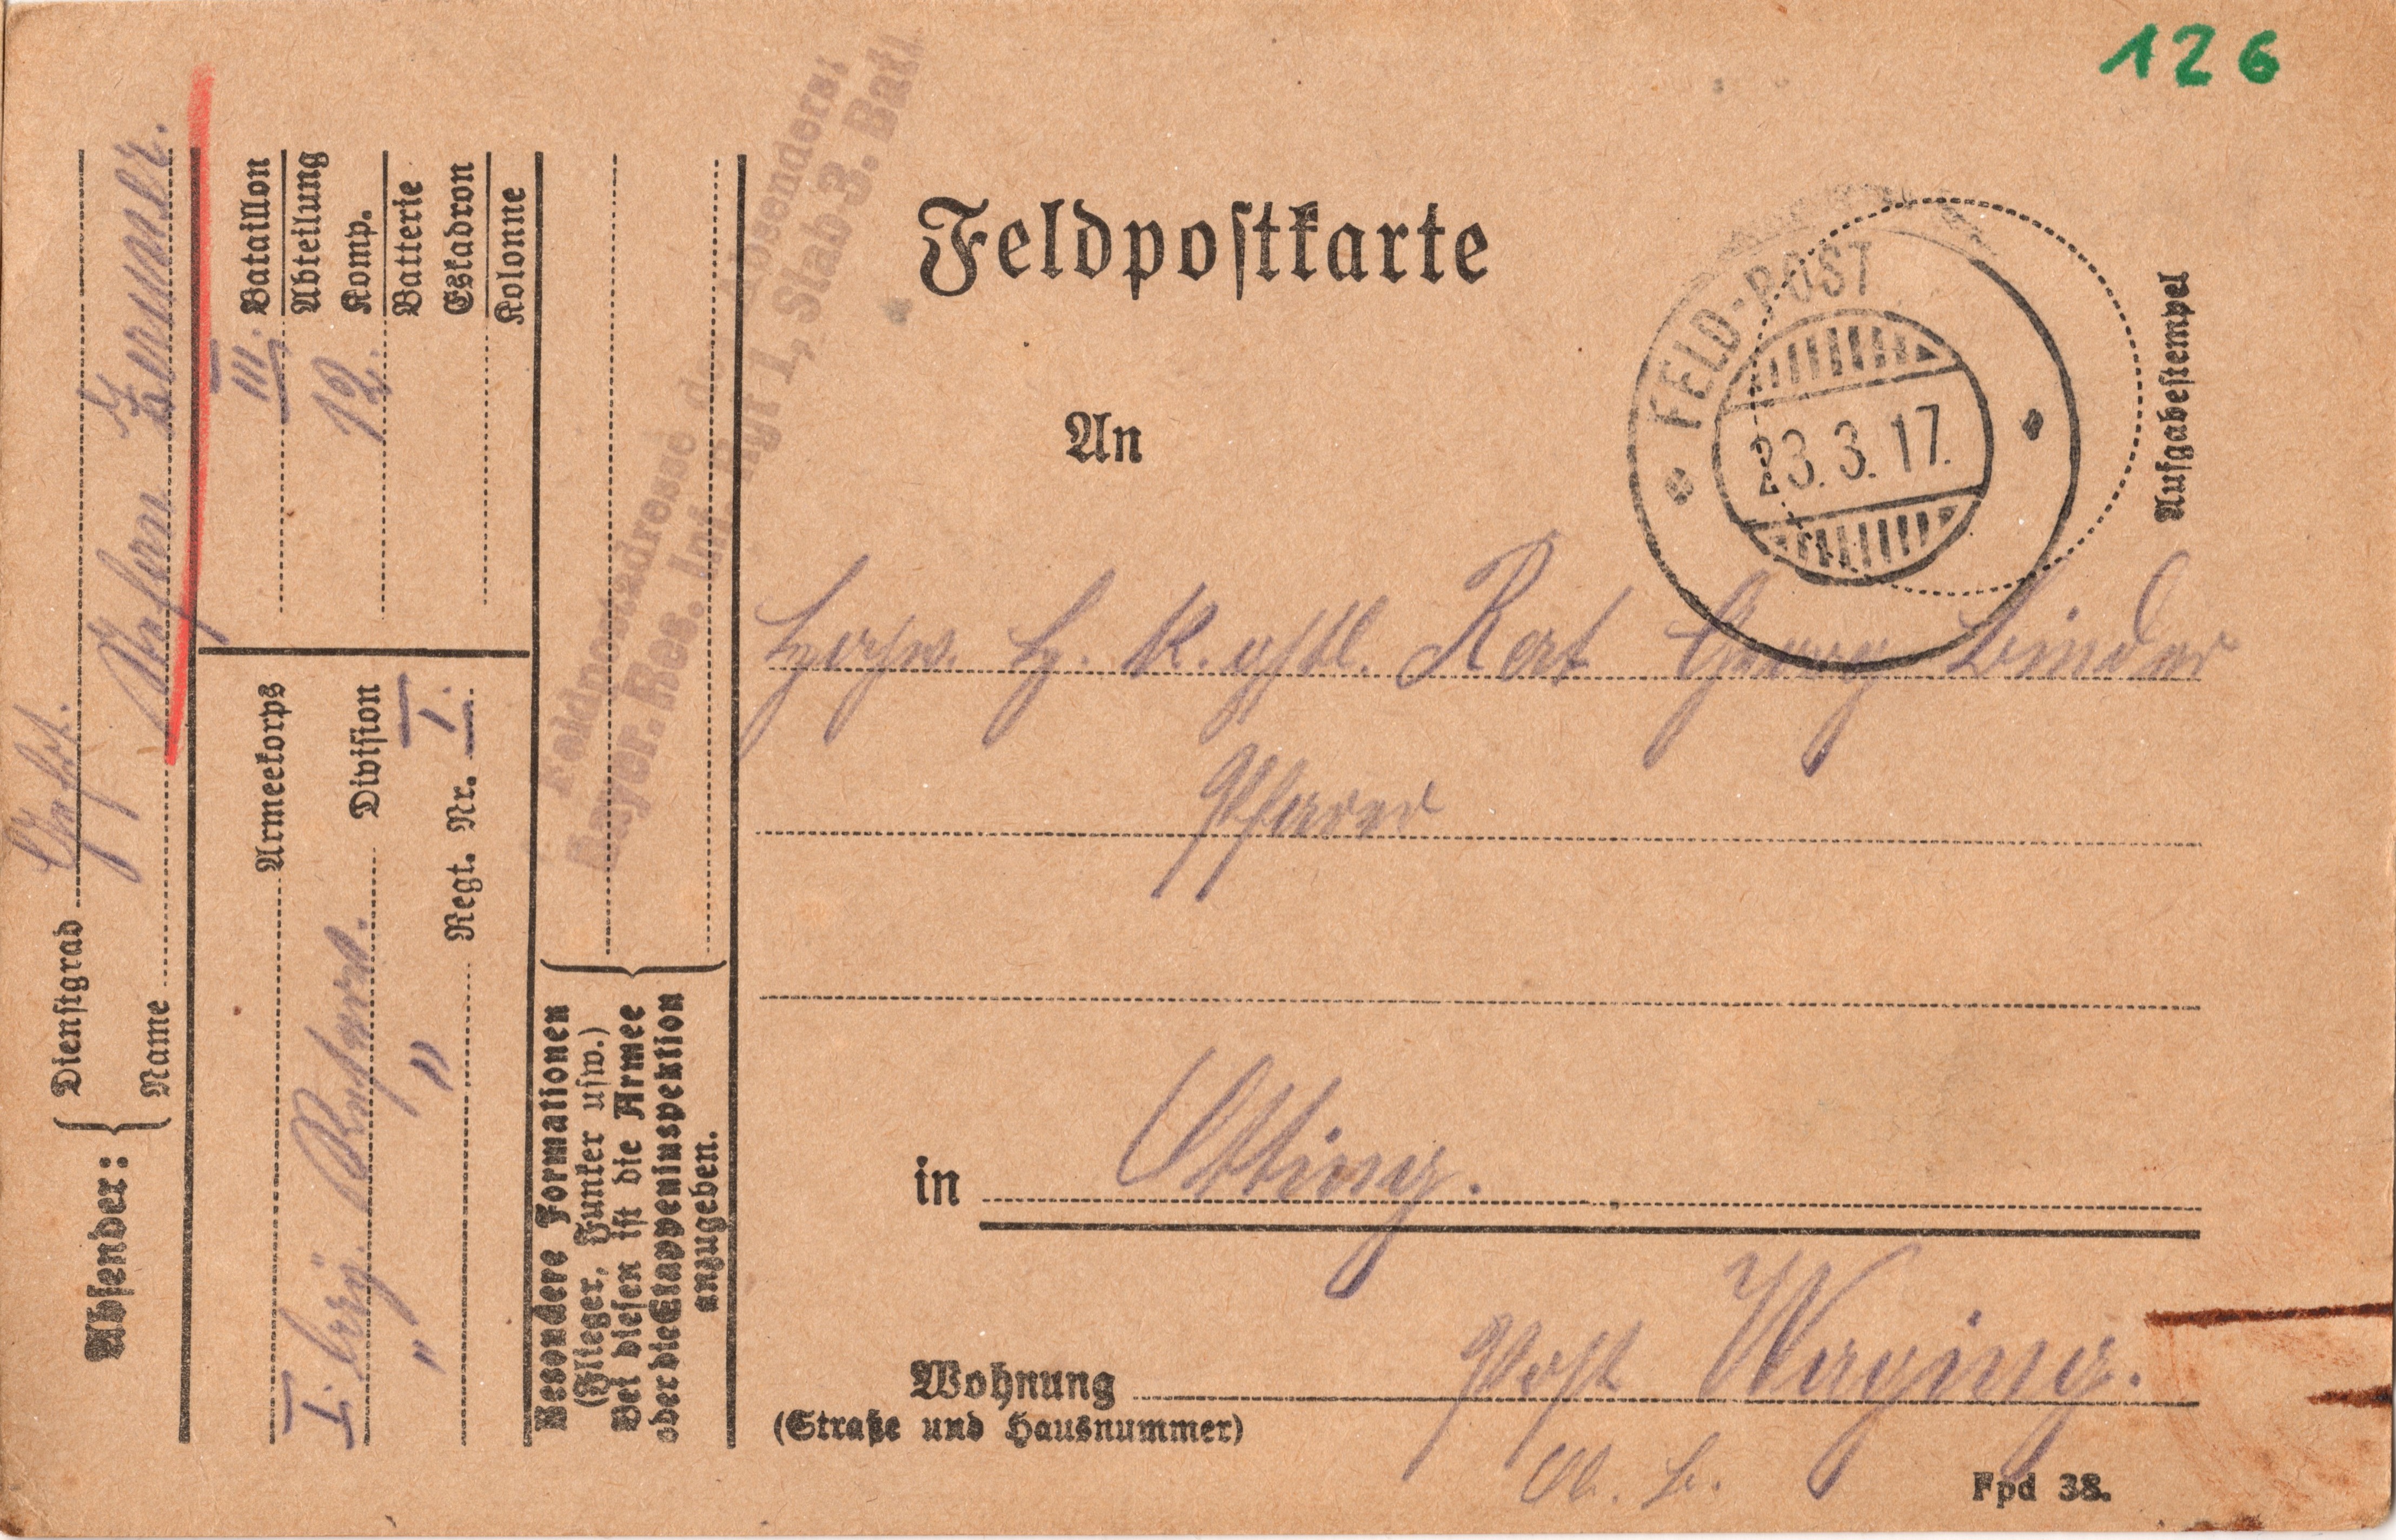 126
Feldpostkarte
Aufgabestempel
FELD-POST
23. 3. 17.
An
Hochw. H. K. gstl. Rat Georg Binder
Pfarrer
in Otting.
Wohnung Post Waging.
(Straße und Hausnummer)
O. B.
Fpd 38.
Absender:
Dienstgrad Gefrt.
Name
III. Bataillon
Abteilung
12. Komp.
Batterie
Eskadron
Kolonne
Armeekorps
I. bay. Reserve. Division
" " Regt. Nr. I.
Besondere Formationen
(Flieger, Funker usw.)
Bei diesen ist die Armee
oder die Etappeninspektion
anzugeben.
Feldpostadresse des Absenders:
Bayer. Res. Inf. Rgt 1, Stab 3. Batl